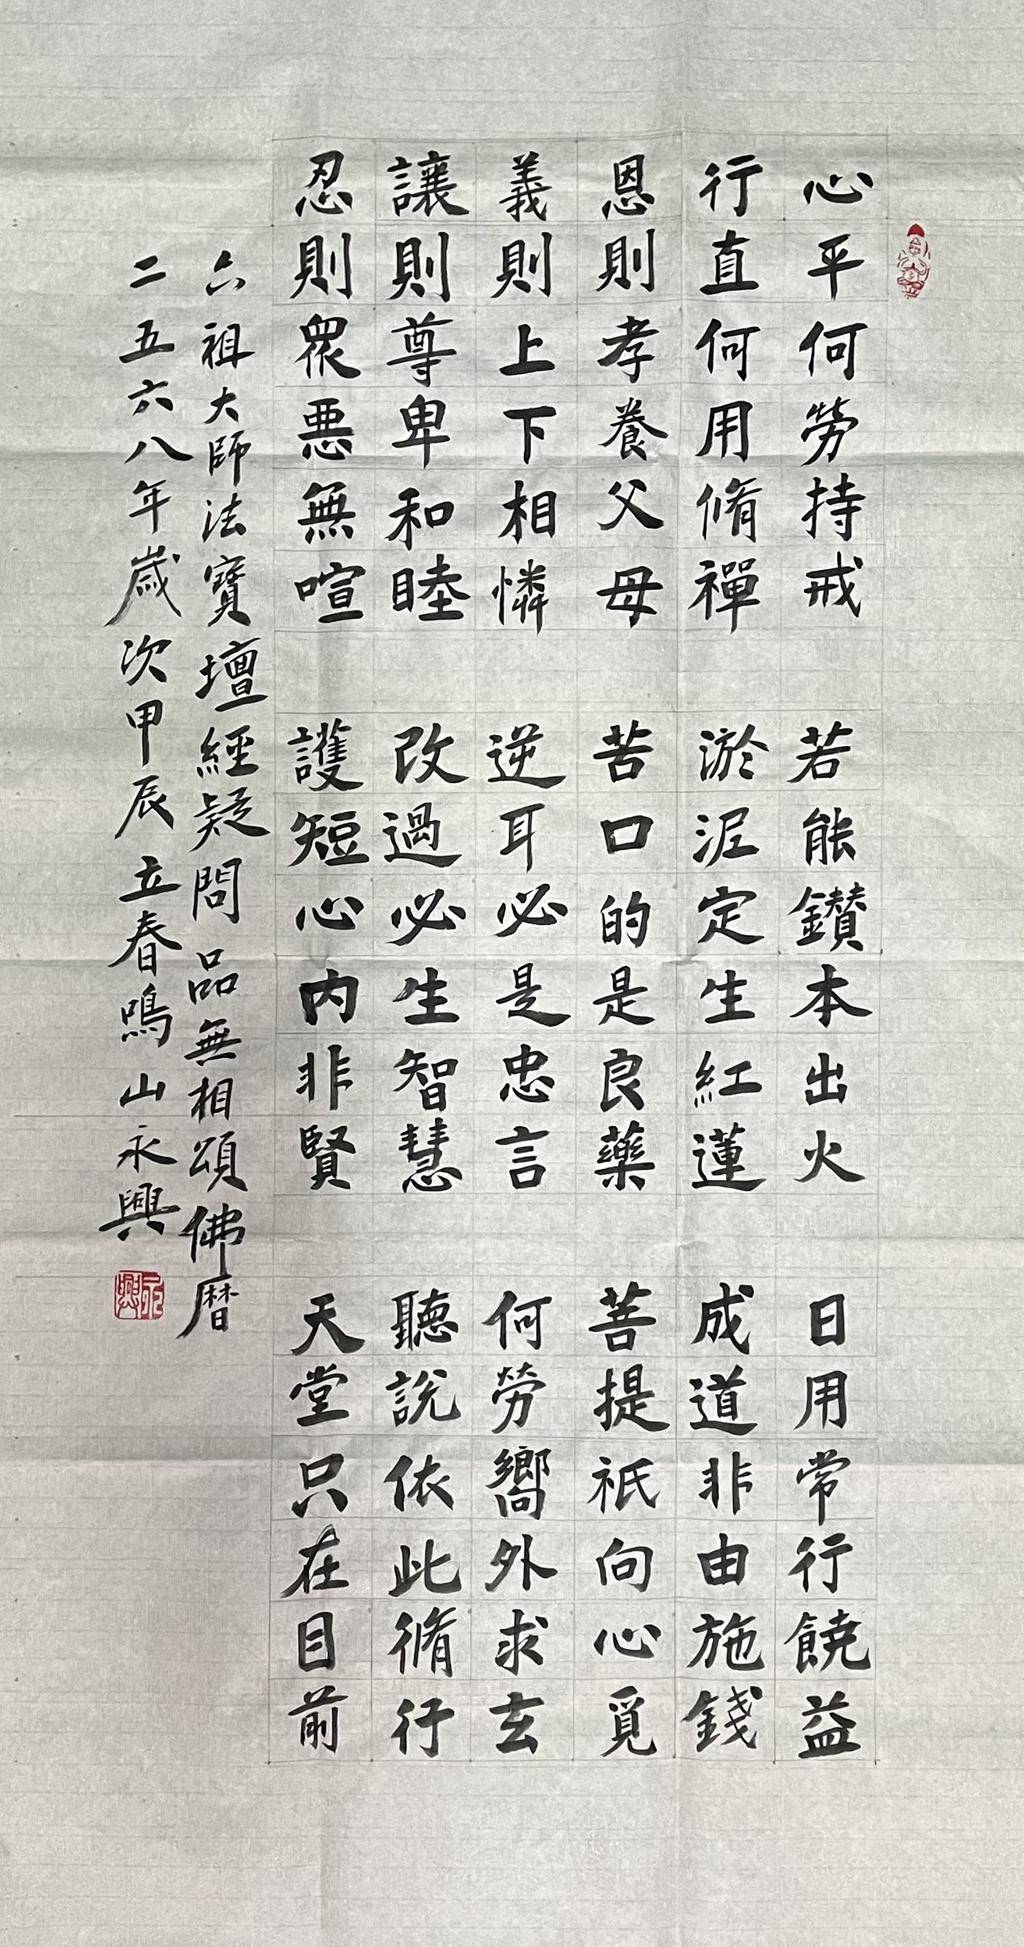 心平何勞持戒
行直何用脩禪
恩則孝養父母
義則上下相憐
讓則尊卑和睦
忍則眾悪無喧
若能鑽本出火
淤泥定生紅蓮
苦口的是良藥
逆耳必是忠言
改過必生智慧
護短心内非賢
日用常行饒益
成道非由施錢
菩提祇向心覓
何勞嚮外求玄
聽說依此脩行
天堂只在目前
六祖大師法寶壇經疑問品無相頌佛暦
二五六八年歲次甲辰立春鳴山永興
永興